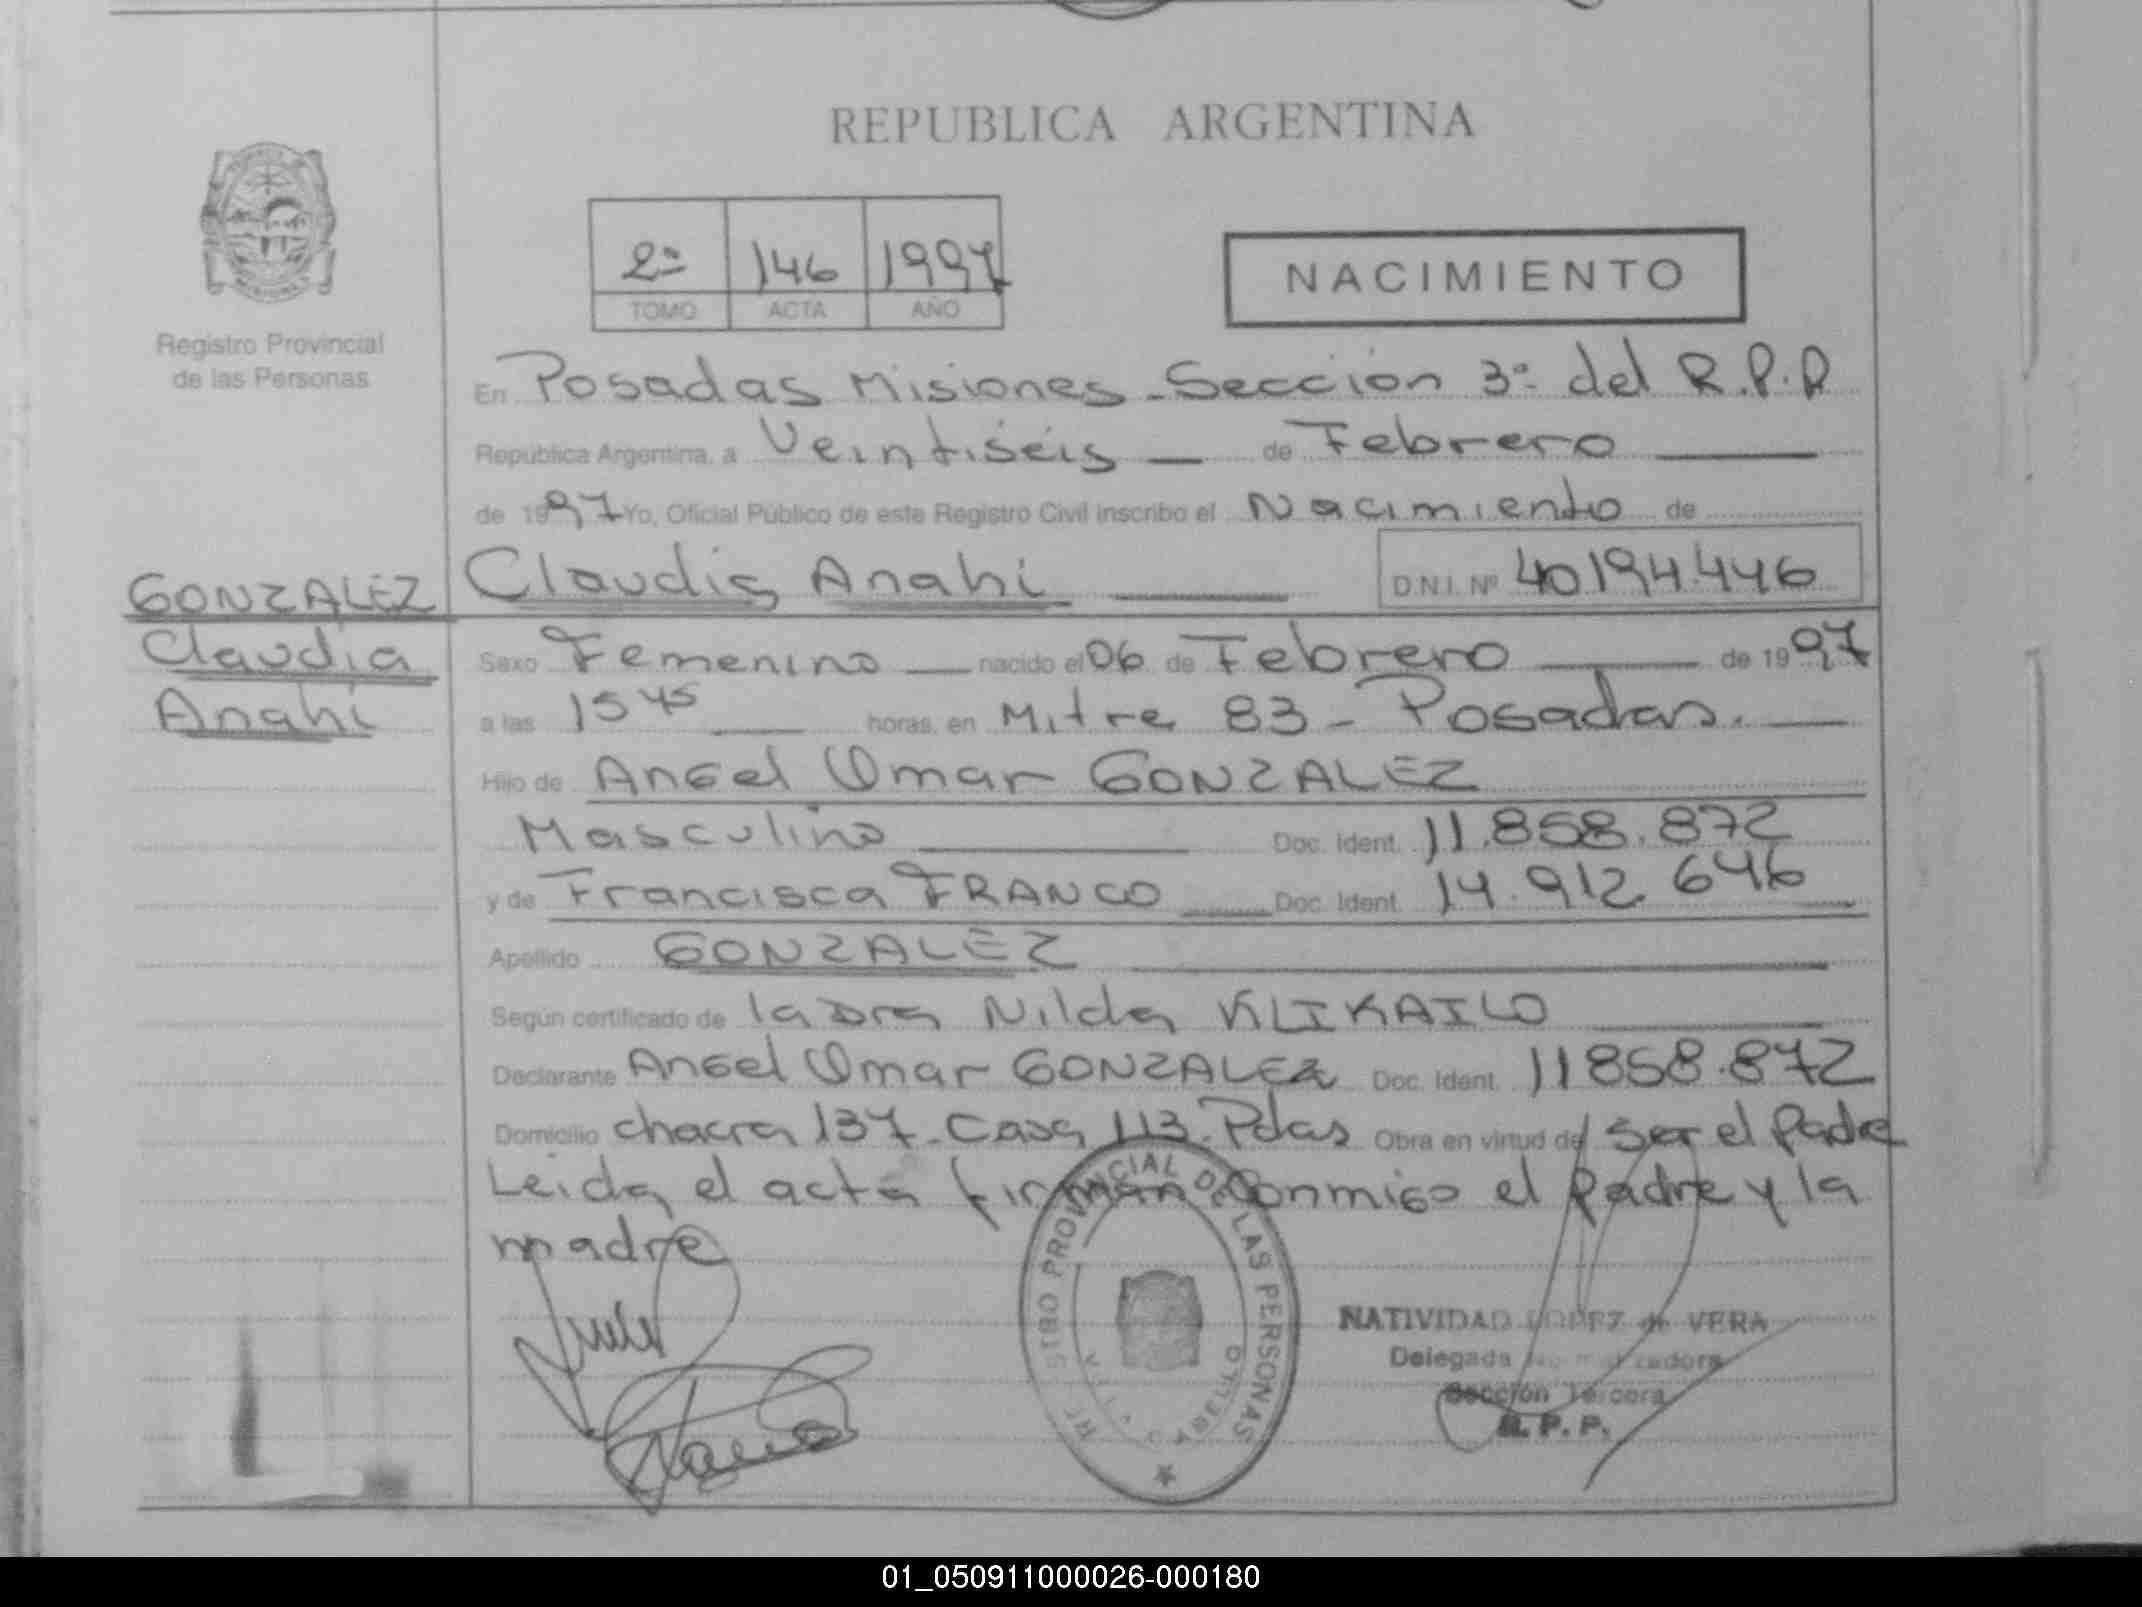 REPUBLICA ARGENTINA
2º 146 1997
TOMO ACTA AÑO
NACIMIENTO
Registro Provincial
de las Personas
En Posadas Misiones - Sección 3º del R.P.P
República Argentina, a Veintiséis de Febrero
de 1997 Yo, Oficial Público de este Registro Civil inscribo el Nacimiento de
GONZALEZ
Claudia
Anahi
Claudia Anahi D.N.I. Nº 40194.446
Sexo Femenino nacido el 06 de Febrero de 1997
a las 15 45 horas, en Mitre 83 - Posadas.
Hijo de Angel Omar GONZALEZ
Masculino Doc. Ident. 11.858.872
y de Francisca FRANCO Doc. Ident. 14.912.646
Apellido GONZALEZ
Según certificado de la Dra Nilda KLIKAILO
Declarante Angel Omar GONZALEZ Doc. Ident. 11858.872
Domicilio chacra 137 - Casa 113 - Pdas Obra en virtud de ser el Padre
Leida el acta firman conmigo el padre y la
madre
REGISTRO PROVINCIAL DE LAS PERSONAS
NATIVIDAD LOPEZ de VERA
Delegada Normalizadora
Sección Tercera
R. P. P.
01_050911000026-000180